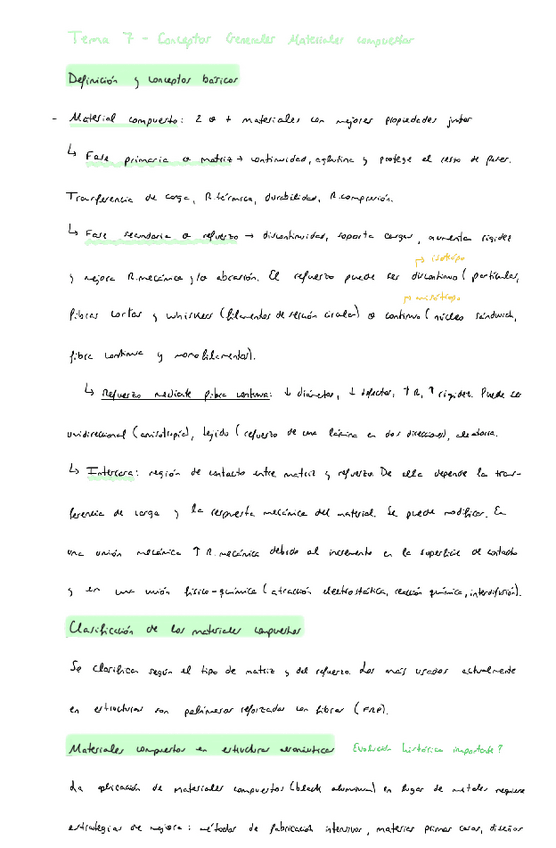 Tema 7 - Conceptos Generales Materiales compuestos
Definición y conceptos básicos
- Material compuesto: 2 o + materiales con mejores propiedades juntos
↳ Fase primaria o matriz → continuidad, aglutina y protege el resto de fases.
Transferencia de carga, R.térmica, durabilidad, R.compresión.
↳ Fase secundaria o refuerzo → discontinuidad, soporta cargas, aumenta rigidez
→ isótropo
y mejora R.mecánica y/o abrasión. El refuerzo puede ser discontinuo (partículas,
→ anisótropo
fibras cortas y whiskers (filamentos de sección circular) o continuo (núcleo sándwich,
fibra continua y monofilamentos).
↳ Refuerzo mediante fibra continua: ↓ diámetro, ↓ defectos, ↑ R, ↑ rigidez. Puede ser
unidireccional (anisotropía), tejido (refuerzo de una lámina en dos direcciones), aleatoria.
↳ Intercara: región de contacto entre matriz y refuerzo. De ella depende la trans-
ferencia de carga y la respuesta mecánica del material. Se puede modificar. En
una unión mecánica ↑ R.mecánica debido al incremento en la superficie de contacto
y en una unión físico-química (atracción electrostática, reacción química, interdifusión).
Clasificación de los materiales compuestos
Se clasifican según el tipo de matriz y del refuerzo. Los más usados actualmente
en estructuras son polímeros reforzados con fibras (FRP).
Materiales compuestos en estructuras aeronáuticas Evolución histórica importante?
La aplicación de materiales compuestos (black aluminum) en lugar de metales requiere
estrategias de mejora: métodos de fabricación intensivos, materias primas caras, diseños